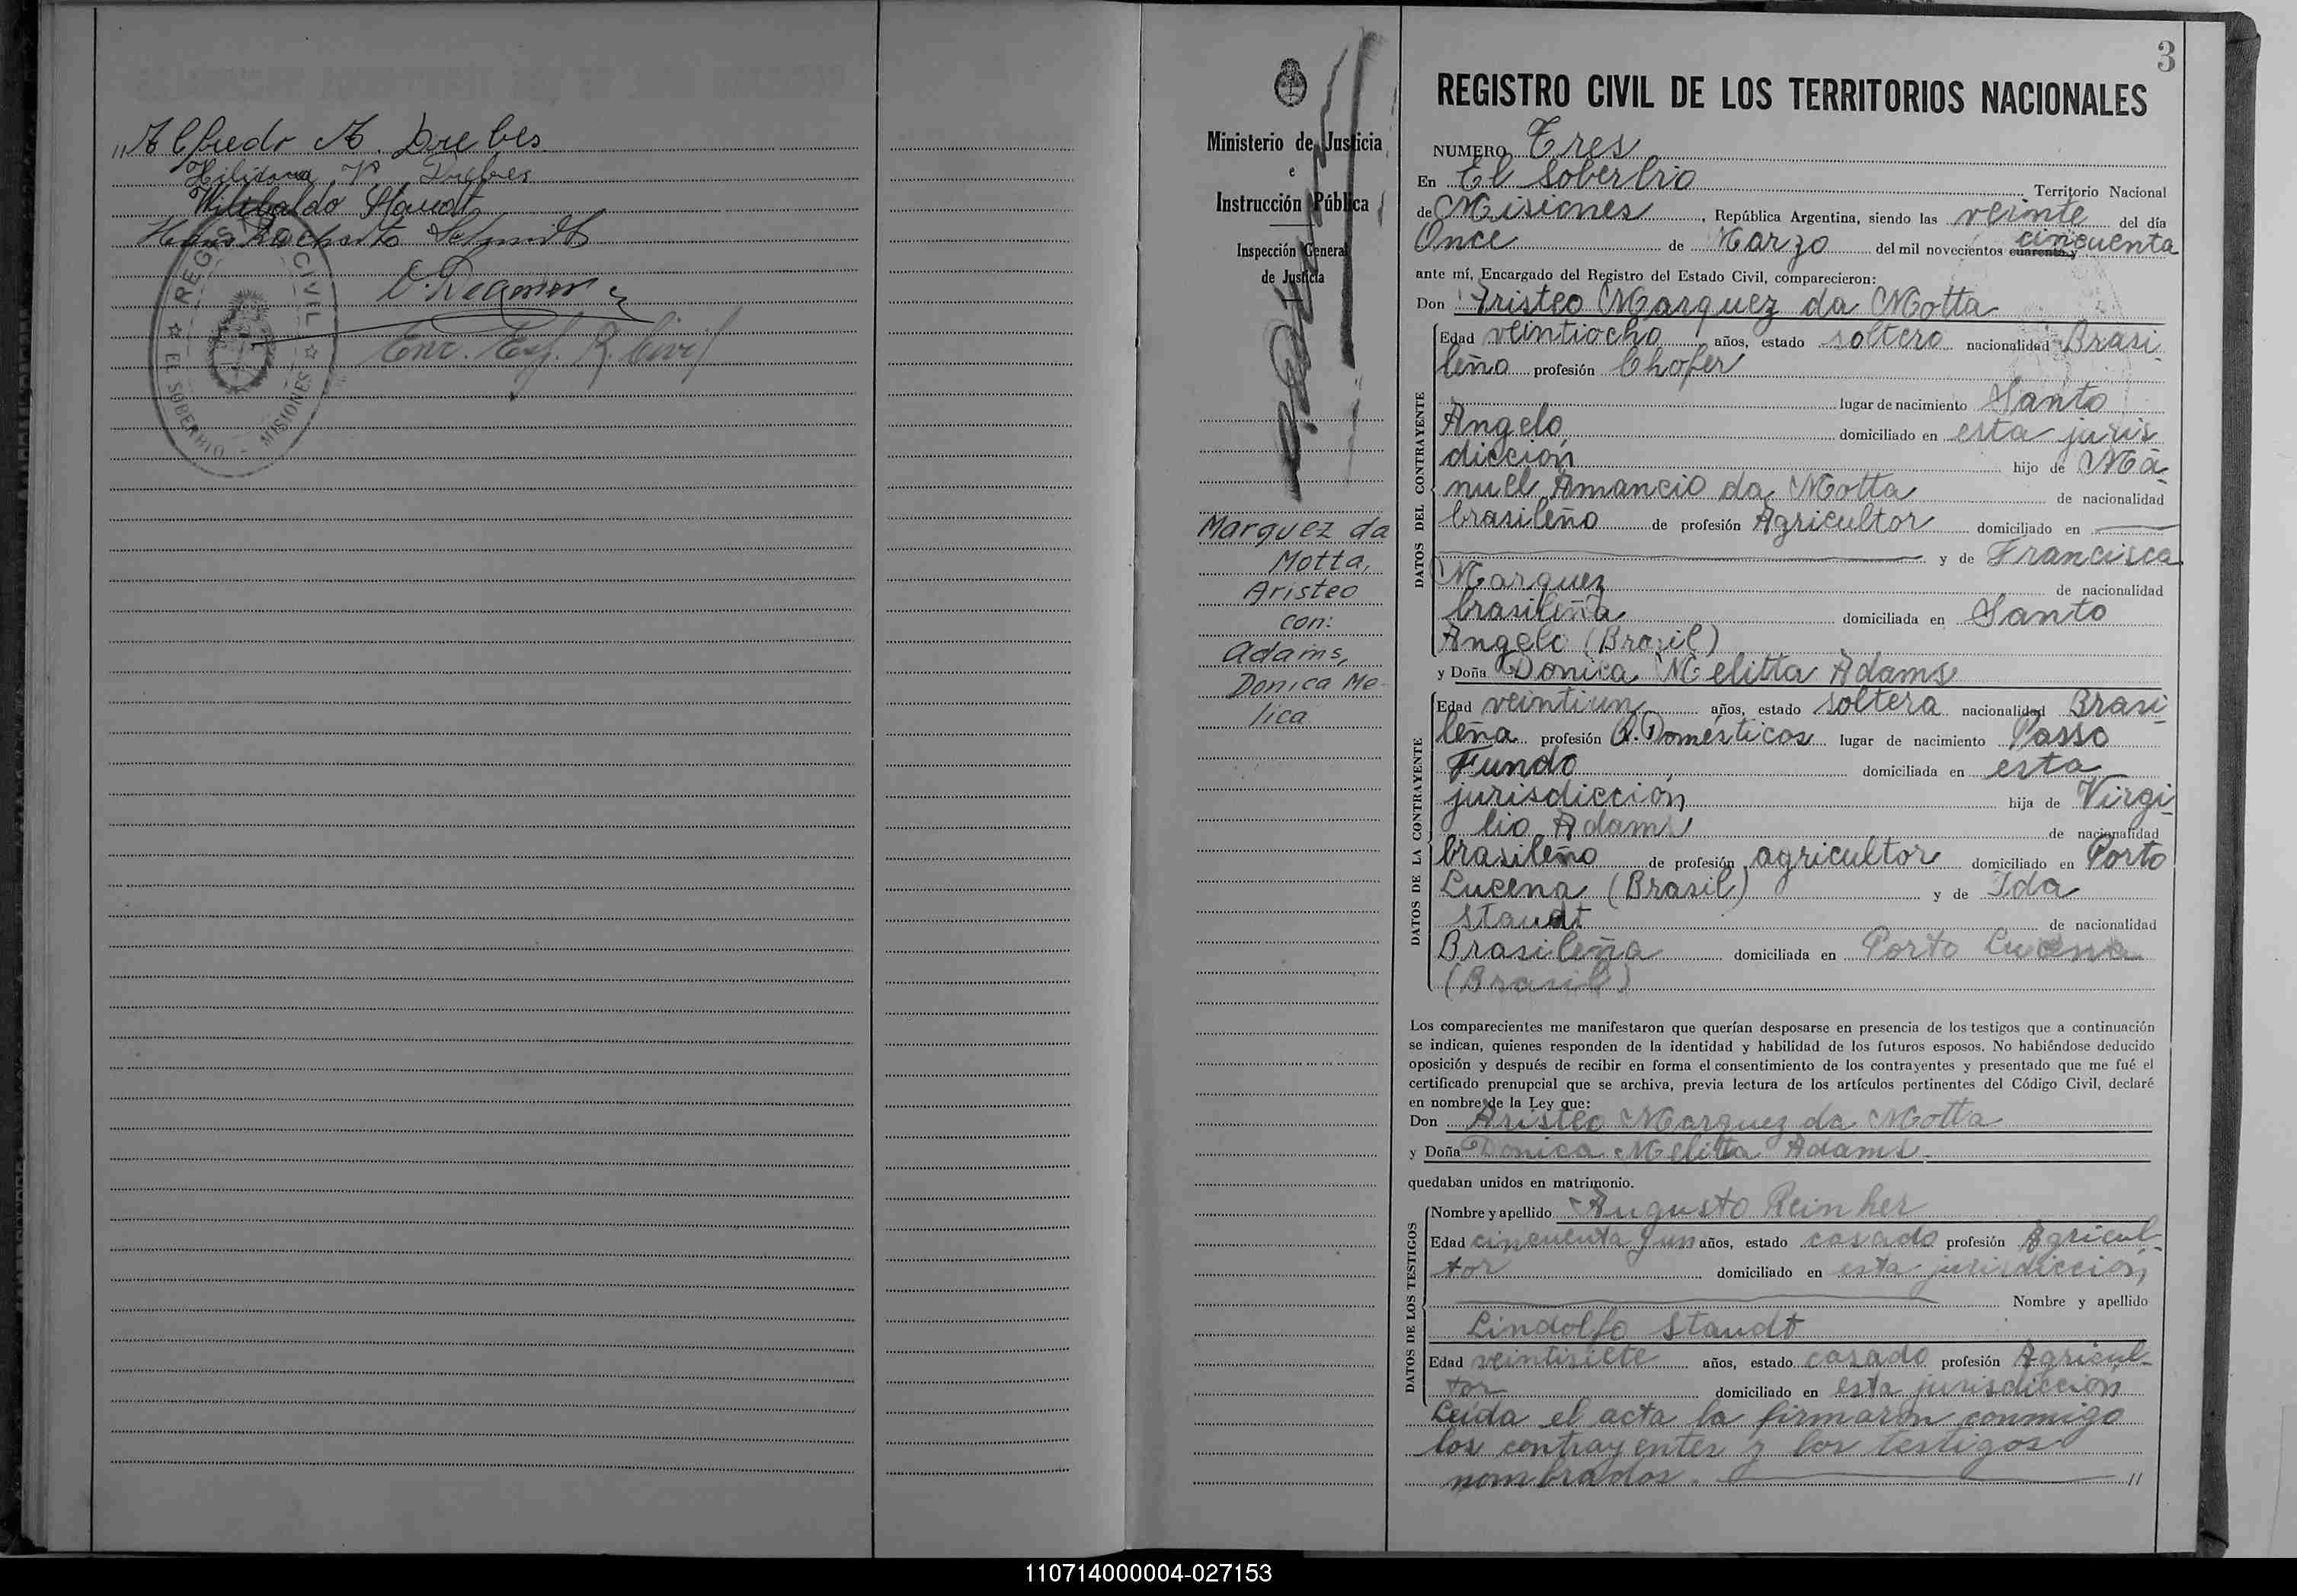 "Alfredo A. Drebes
Wilibaldo Staudt
Schmidt
Enc. R. Civil
REGISTRO CIVIL
EL SOBERBIO - MISIONES
Ministerio de Justicia
e
Instrucción Pública
Inspección General
de Justicia
Marquez da
Motta,
Aristeo
con:
Adams,
Donica Me-
lica
3
REGISTRO CIVIL DE LOS TERRITORIOS NACIONALES
NUMERO Tres
En El Soberbio Territorio Nacional
de Misiones, República Argentina, siendo las veinte del día
Once de Marzo del mil novecientos cuarenta y cincuenta
ante mí, Encargado del Registro del Estado Civil, comparecieron:
Don Aristeo Marquez da Motta
DATOS DEL CONTRAYENTE
Edad veintiocho años, estado soltero nacionalidad Brasi-
leño profesión Chofer
lugar de nacimiento Santo
Angelo domiciliado en esta juris-
dicción hijo de Ma-
nuel Amancio da Motta de nacionalidad
brasileño de profesión Agricultor domiciliado en
y de Francisca
Marquez de nacionalidad
brasileña domiciliada en Santo
Angelo (Brasil)
y Doña Donica Melitta Adams
DATOS DE LA CONTRAYENTE
Edad veintiun años, estado soltera nacionalidad Brasi-
leña profesión Q. Domésticos lugar de nacimiento Passo
Fundo domiciliada en esta
jurisdicción hija de Virgi-
lio Adams de nacionalidad
brasileño de profesión agricultor domiciliado en Porto
Lucena (Brasil) y de Ida
Staudt de nacionalidad
Brasileña domiciliada en Porto Lucena
(Brasil)
Los comparecientes me manifestaron que querían desposarse en presencia de los testigos que a continuación
se indican, quienes responden de la identidad y habilidad de los futuros esposos. No habiéndose deducido
oposición y después de recibir en forma el consentimiento de los contrayentes y presentado que me fué el
certificado prenupcial que se archiva, previa lectura de los artículos pertinentes del Código Civil, declaré
en nombre de la Ley que:
Don Aristeo Marquez da Motta
y Doña Donica Melitta Adams.
quedaban unidos en matrimonio.
DATOS DE LOS TESTIGOS
Nombre y apellido Augusto Reinher
Edad cincuenta y un años, estado casado profesión Agricul-
tor domiciliado en esta jurisdicción,
Nombre y apellido
Lindolfo Staudt
Edad veintisiete años, estado casado profesión Agricul-
tor domiciliado en esta jurisdicción
Leída el acta la firmaron conmigo
los contrayentes y los testigos
nombrados. //
110714000004-027153